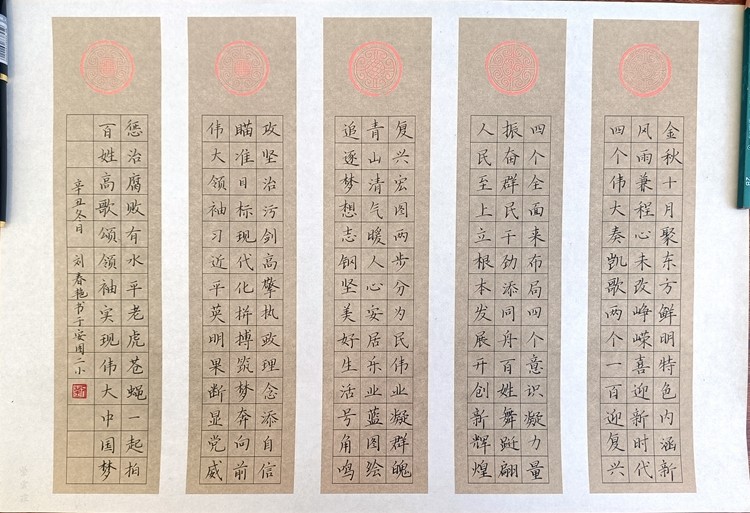 金秋十月聚东方鲜明特色内涵新
风雨兼程心未改峥嵘喜迎新时代
四个伟大奏凯歌两个一百迎复兴
四个全面来布局四个意识凝力量
振奋群民干劲添同舟百姓舞跹翩
人民至上立根本发展开创新辉煌
复兴宏图两步分为民伟业凝群魄
青山清气暖人心安居乐业蓝图绘
追逐梦想志钢坚美好生活号角鸣
攻坚治污剑高擎执政理念添自信
瞄准目标现代化拼搏筑梦奔向前
伟大领袖习近平英明果断显党威
惩治腐败有水平老虎苍蝇一起拍
百姓高歌颂领袖实现伟大中国梦
辛丑冬月 刘春艳书于安国二小